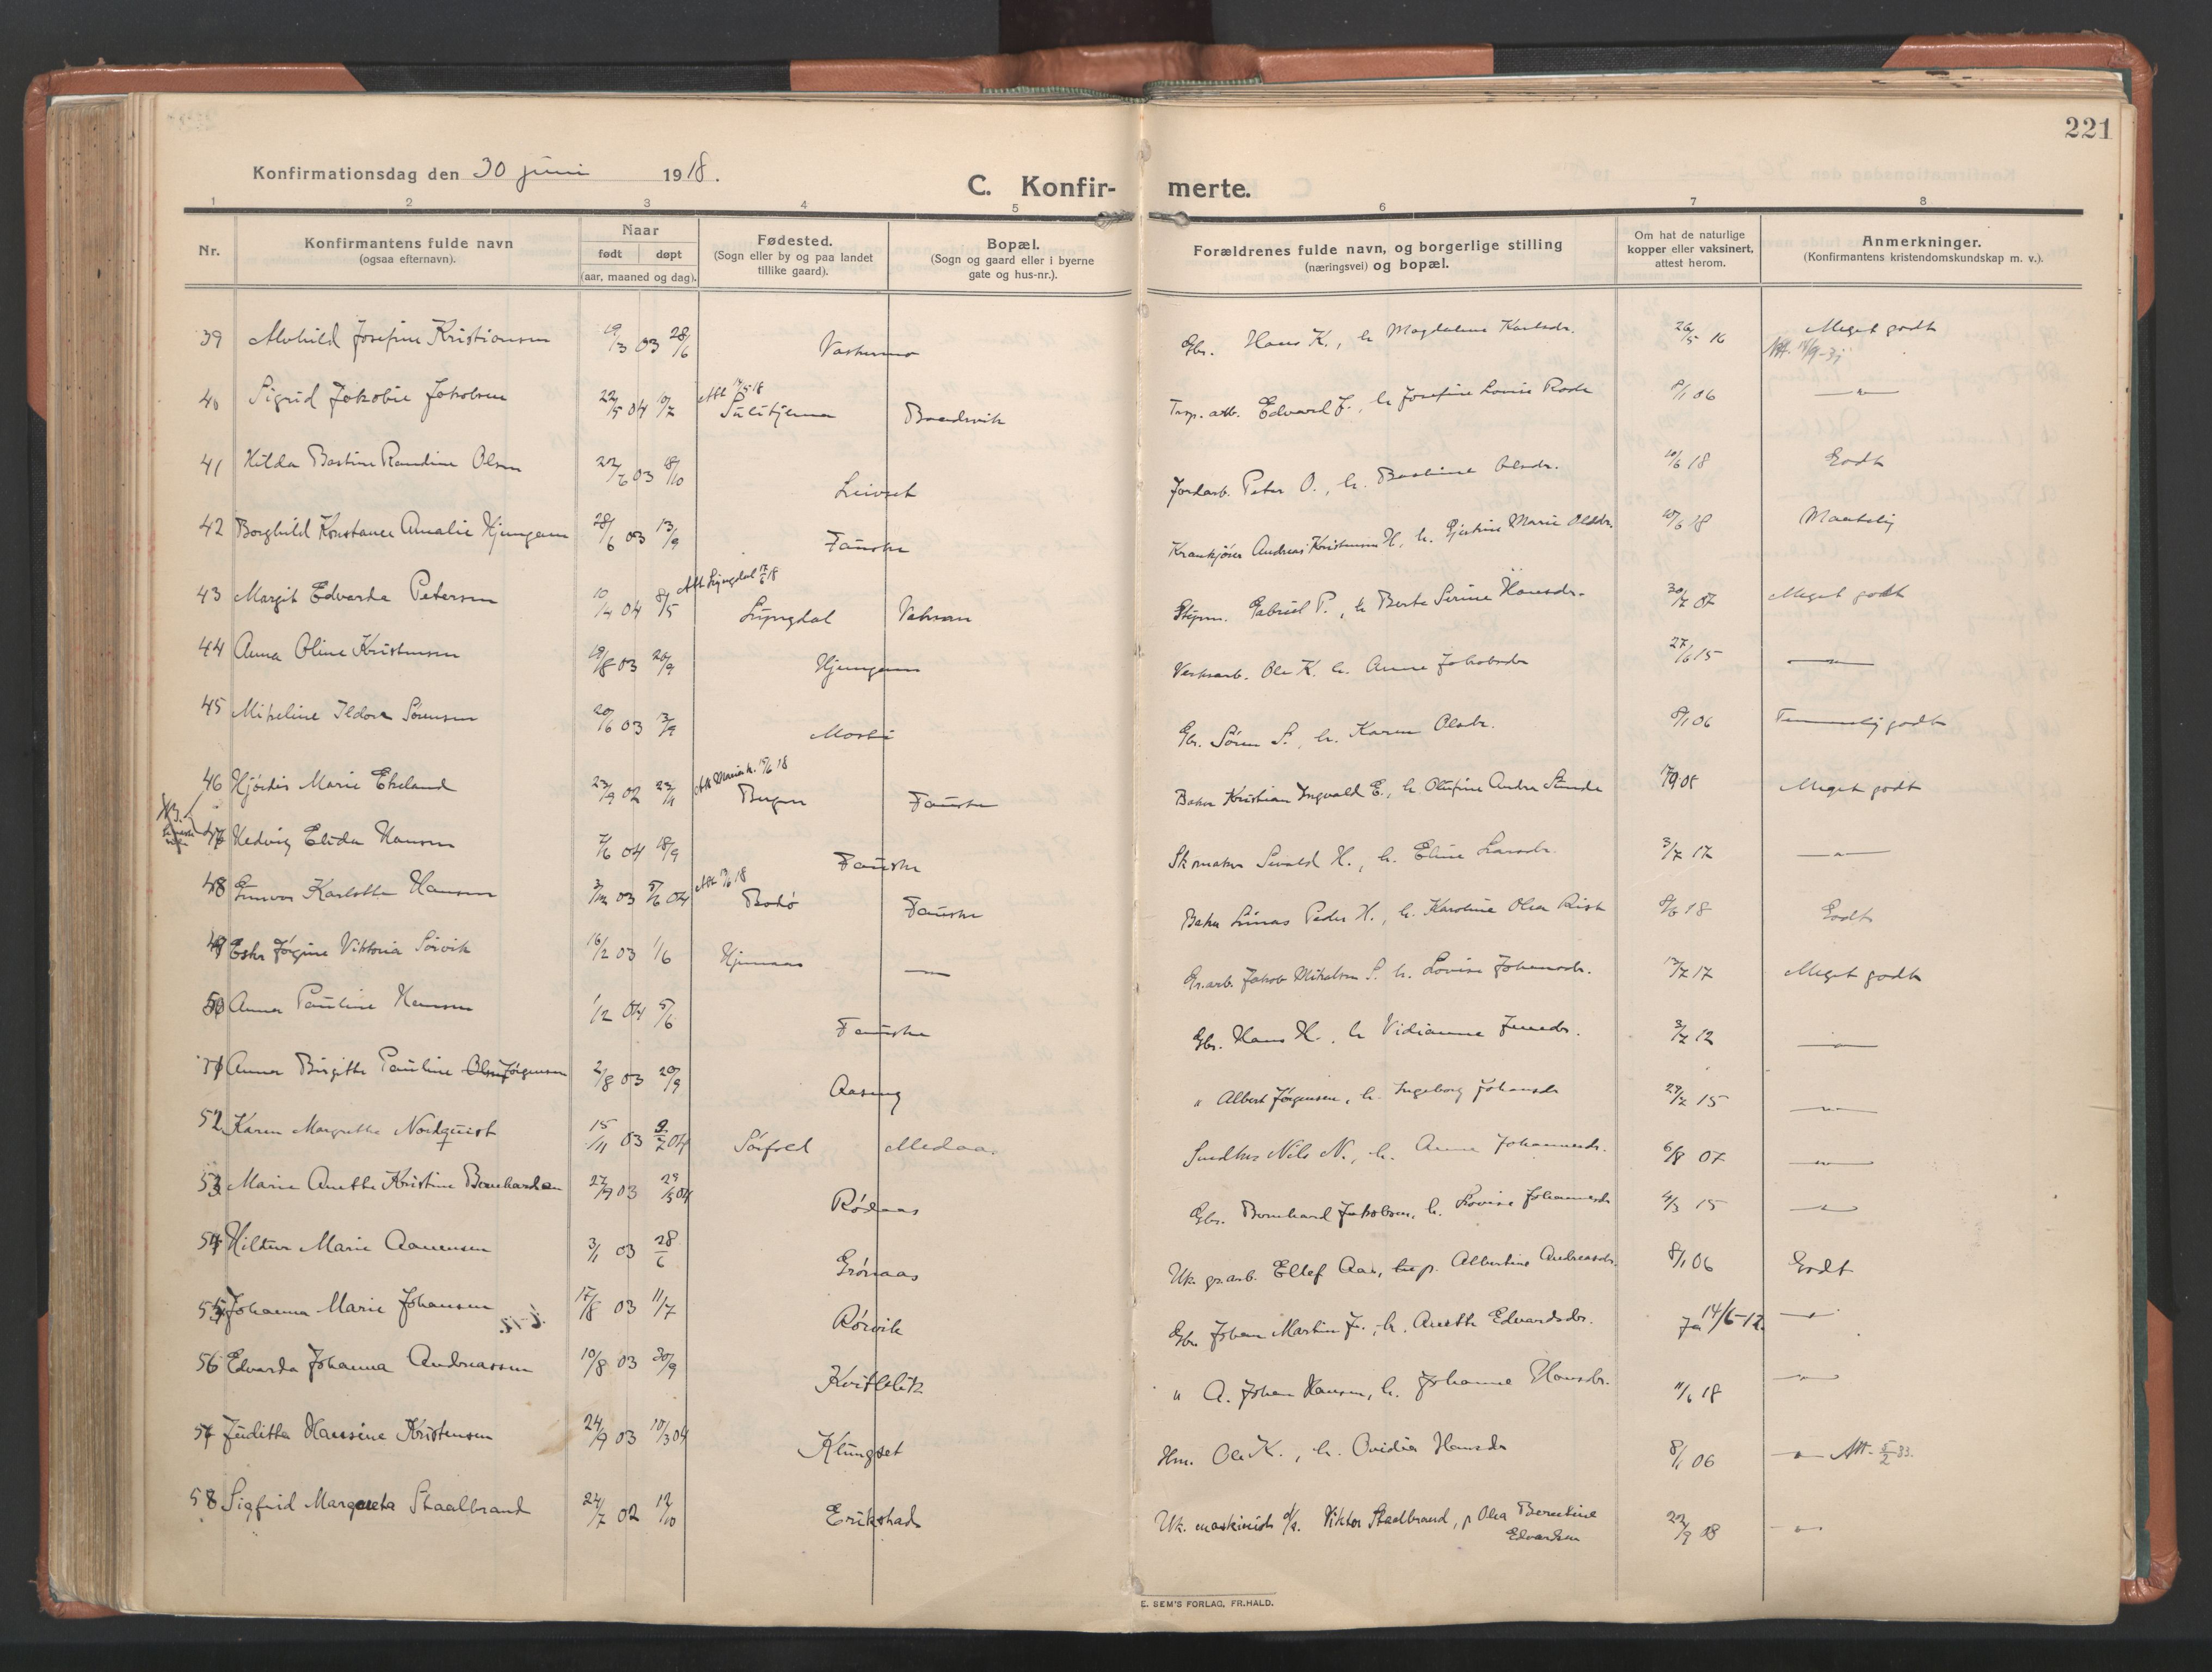 221
Konfirmationsdag den 30 juni 1918.
C. Konfir- merte.
1 2 3 4 5 6 7 8
Nr.
Konfirmantens fulde navn
(ogsaa efternavn).
Naar
født døpt
(aar, maaned og dag).
Fødested.
(Sogn eller by og paa landet
tillike gaard).
Bopæl.
(Sogn og gaard eller i byerne
gate og hus-nr.).
Forældrenes fulde navn, og borgerlige stilling
(næringsvei) og bopæl.
Om hat de naturlige
kopper eller vaksinert,
attest herom.
Anmerkninger.
(Konfirmantens kristendomskundskap m. v.).
39 Alvhild Josefine Kristiansen 19/3 03 28/6 Gbr. Hans K., h. Magdalene Karlsdr. 26/5 16 Meget godt
40 Sigrid Jakobie Jakobsen 22/5 04 10/7 Att 14/5 18 Sulitjelma Edvard J., h. Josefine Lovise 8/1 06 —"—
41 Hilda Bastine Randine Olsen 22/6 03 18/10 Leivset Jordarb. Peter O., h. Bastine Olsdr. 10/6 18 Godt
42 Borghild Konstance Amalie Hjemgam 28/6 03 13/9 Fauske Krankjører Andreas Kristensen H., h. Marie Olsdr. 10/6 18 Maatelig
43 Margit Edvarda Petersen 10/4 04 8/5 Att Lyngdal 17/6 18 Lyngdal Gabriel P., h. Berte Serine Hansdr. 30/7 07 Meget godt
44 Anna Oline Kristensen 19/8 03 20/9 Verksarb. Ole K. h. Anne Jakobsdr 27/6 15 —"—
45 Mikeline Ildora Sørensen 20/6 03 13/9 Gbr. Søren S., h. Karen Olsdr. 8/1 06 Temmelig godt
46 Hjørdis Marie Ekeland 23/9 02 23/11 15/6 18 Bergen Fauske Baker Kristian Ingvald E., h. Olufine Andrea 05 Meget godt
NB.
47 Hedvig Elida Hansen 7/6 04 18/9 Fauske Skomaker Sivald H., h. Eline Larsdr. 3/7 17 —"—
48 Gunvor Karlotta Hansen 3/12 03 5/6 04 Att 13/6 18 Bodø Fauske Baker Linas Peder H., h. Karoline Olea Rist 8/6 18 Godt
49 Ester Jørgine Viktoria Sørvik 16/2 03 1/6 — Gr.arb. Jakob Mikalsen S. h. Lovise Johansdr. 13/7 17 Meget godt
50 Anna Pauline Hansen 1/2 04 5/6 Fauske Gbr. Hans H., h. Vidianne Jensdr. 3/7 12 —"—
51 Anna Birgitte Pauline Olsen Jørgensen 2/8 03 20/9 Aaseng " Albert Jørgensen, h. Ingeborg Johansdr 27/7 15 —"—
52 Karen Margrethe Nordquist 15/11 03 3/7 04 Sørfold Medaas Snedker Nils N., h. Anna Johannesdr. 6/8 07 —"—
53 Marie Anette Kristine Bernhardsen 27/9 03 29/5 04 Rødaas Gbr. Bernhard Jakobsen, h. Lovise Johannesdr 4/3 15 —"—
54 Hildur Marie Aanensen 3/1 03 28/6 Grønaas Uk. gr.arb. Ellef Aan, p. Albertine Andreasdr. 8/1 06 Godt
55 Johanna Marie Johansen 17/8 03 11/7 Rørvik Gbr. Johan Martin J., h. Anette Edvardsdr. Ja 14/6-12. —"—
56 Edvarda Johanna Andreassen 10/8 03 20/9 Kvitblik " A. Johan Hansen, h. Johanne Hansdr. 11/6 18 —"—
57 Juditta Hansine Kristensen 24/9 03 10/3 04 Klungset Hm. Ole K., h. Ovidia Hansdr 8/1 06 —"— Att. 5/2 33.
58 Sigfrid Margareta Staalbrand 24/7 02 12/10 Erikstad Uk. maskinist Viktor Staalbrand, p Olea Berntine
Edvardsen 22/9 08 —"—
E. SEM'S FORLAG, FR.HALD.